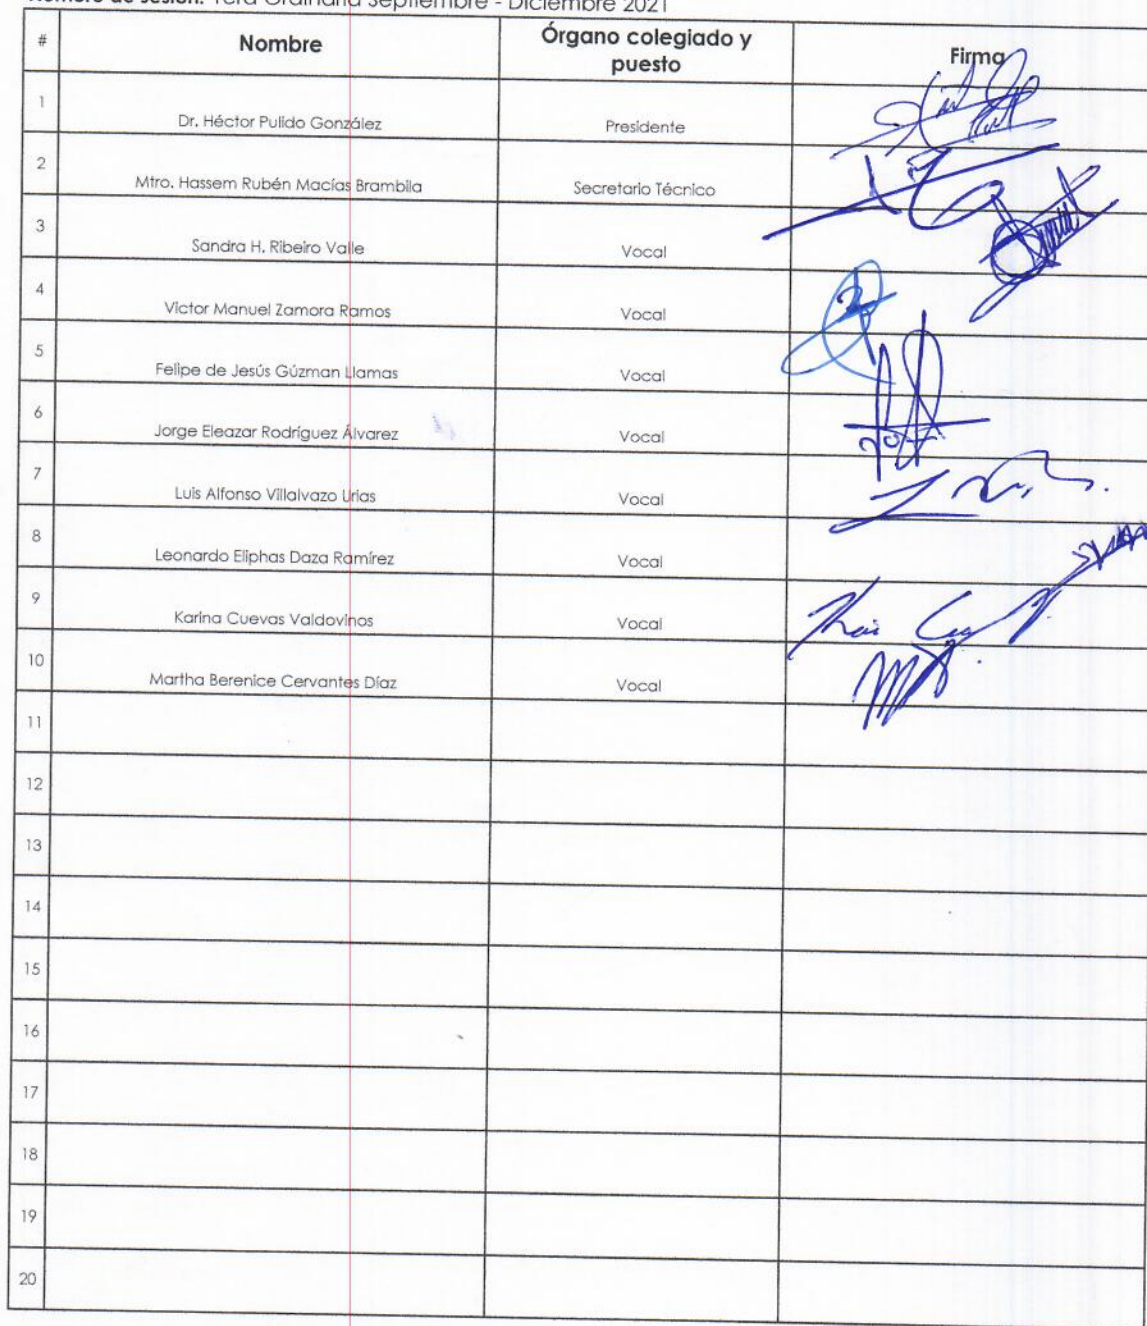 Número de sesión: 1era Ordinaria Septiembre - Diciembre 2021
# Nombre Órgano colegiado y puesto Firma
1 Dr. Héctor Pulido González Presidente
2 Mtro. Hassem Rubén Macías Brambila Secretario Técnico
3 Sandra H. Ribeiro Valle Vocal
4 Victor Manuel Zamora Ramos Vocal
5 Felipe de Jesús Gúzman Llamas Vocal
6 Jorge Eleazar Rodríguez Álvarez Vocal
7 Luis Alfonso Villalvazo Urias Vocal
8 Leonardo Eliphas Daza Ramírez Vocal
9 Karina Cuevas Valdovinos Vocal
10 Martha Berenice Cervantes Díaz Vocal
11
12
13
14
15
16
17
18
19
20